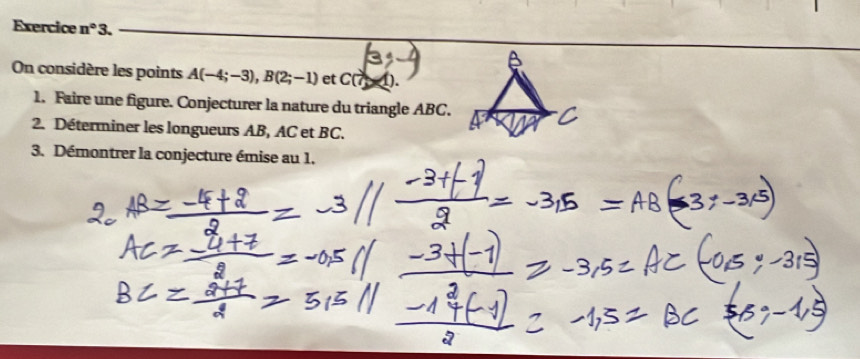 Exercice n° 3.
(3;-4)
On considère les points A(−4;−3), B(2;−1) et C(7;−1).
1. Faire une figure. Conjecturer la nature du triangle ABC.
2. Déterminer les longueurs AB, AC et BC.
3. Démontrer la conjecture émise au 1.
B
A C
2. AB = \frac{-4+2}{2} = -3 // \frac{-3+(-1)}{2} = -3,5 = AB (-3; -3,5)
AC = \frac{-4+7}{2} = -0,5 // \frac{-3+(-1)}{2} = -3,5 = AC (-0,5; -3,5)
BC = \frac{2+7}{2} = 5,5 // \frac{-1+(-1)}{2} = -1,5 = BC (5,5; -1,5)